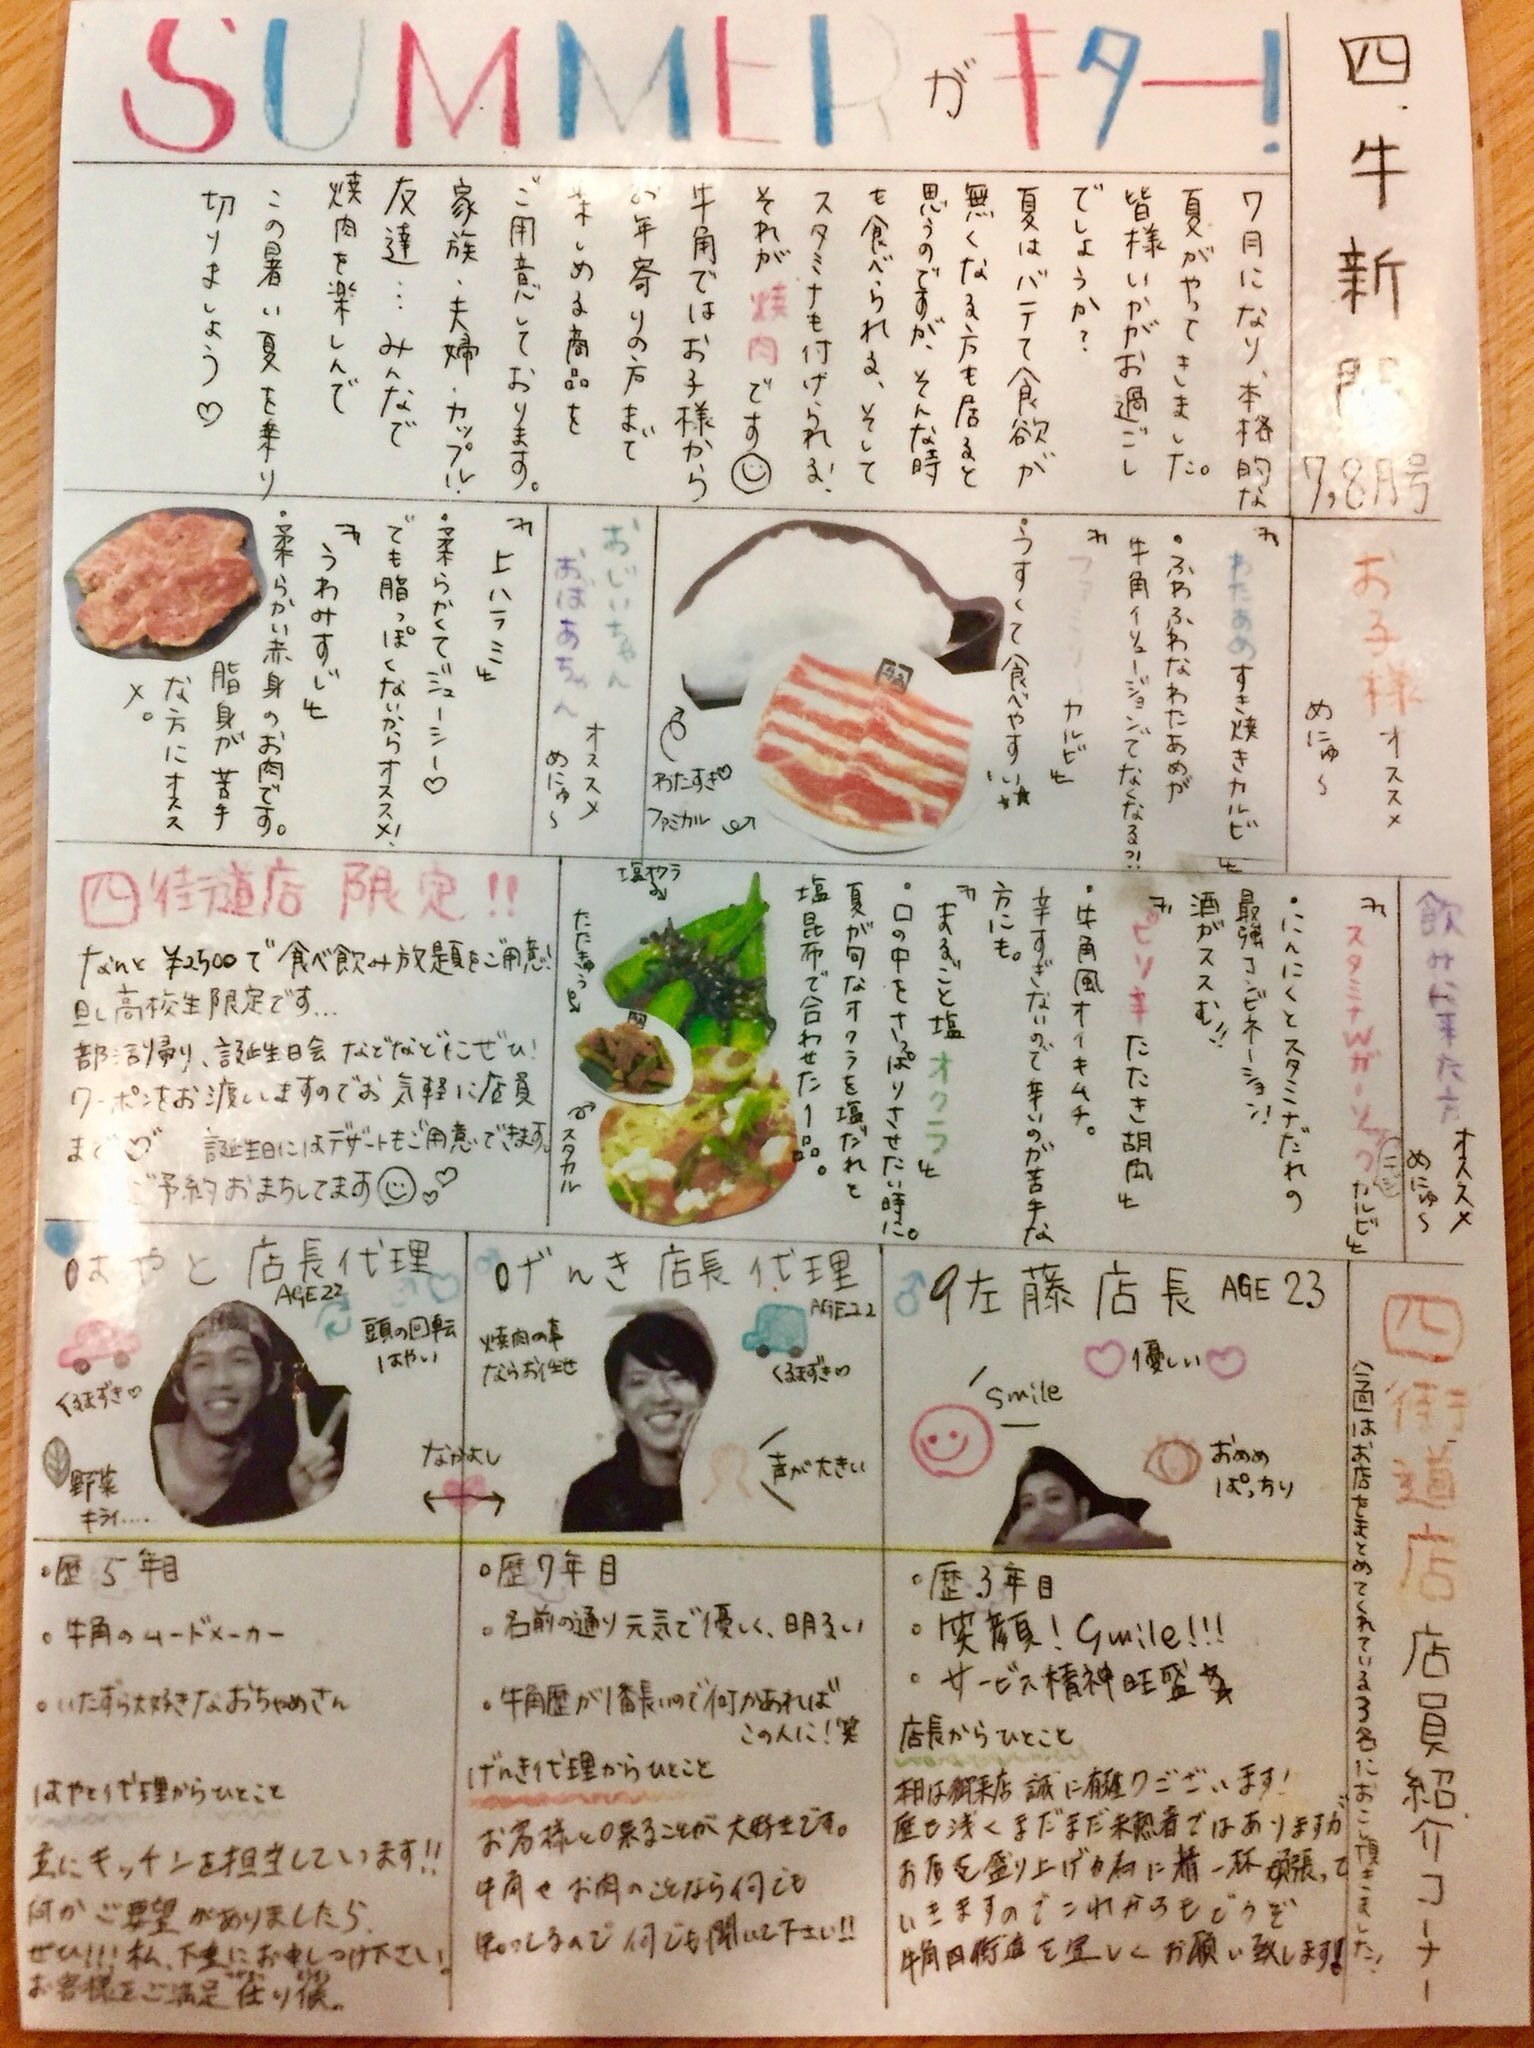 四牛新聞
7,8月号
SUMMERがキター!
7月になり、本格的な
夏がやってきました。
皆様いかがお過ごし
でしょうか?
夏はバテて食欲が
無くなる方も居ると
思うのですが、そんな時
も食べられる、そして
スタミナも付けられる!
それが焼肉です
牛角ではお子様から
お年寄りの方まで
楽しめる商品を
ご用意しております。
家族・夫婦・カップル!
友達…みんなで
焼肉を楽しんで
この暑い夏を乗り
切りましょう♡
お子様オススメ
めにゅ〜
『わたあめすき焼きカルビ』
・ふわふわなわたあめが
牛角イリュージョンでなくなる?!
『ファミリーカルビ』
・うすくて食べやすい☆
わたすき♡
ファミカル
おじいちゃん
おばあちゃん
オススメ
めにゅ〜
『上ハラミ』
・柔らかくてジューシー♡
でも脂っぽくないからオススメ!
『うわみすじ』
・柔らかい赤身のお肉です。
脂身が苦手
な方にオスス
メ。
飲みに来た方
オススメ
めにゅ〜
『スタミナWガーリックカルビ』
・にんにくとスタミナだれの
最強コンビネーション!
酒がススむ!!
『ピリ辛たたき胡瓜』
・牛角風オイキムチ。
辛すぎないので辛いのが苦手な
方にも。
『まるごと塩オクラ』
・口の中をさっぱりさせたい時に。
夏が旬なオクラを塩だれと
塩昆布で合わせた1品。
塩オクラ
たたきゅう
スタカル
四街道店 限定!!
なんと¥2500で食べ飲み放題をご用意!
但し高校生限定です…
部活帰り、誕生日会などなどにぜひ!
クーポンをお渡しいますのでお気軽に店員
まで♡ 誕生日にはデザートもご用意できます。
ご予約おまちしてます
四街道店 店員紹介コーナー
(今回はお店をまとめてくれている3名におこし頂きました!
佐藤店長 AGE 23
♡優しい♡
smile
おめめ
ぱっちり
・歴3年目
・笑顔!Smile!!!
・サービス精神旺盛☆
店長からひとこと
相は御来店誠に有難うございます!
歴も浅くまだまだ未熟者ではありますが
お店を盛り上げる為に精一杯頑張って
いきますのでこれからもどうぞ
牛角四街道を宜しくお願い致します!
げんき店長代理
AGE22
焼肉の事
ならお任せ
くるまずき♡
声が大きい
なかよし
・歴7年目
・名前の通り元気で優しく、明るい
・牛角歴が1番長いので何かあれば
この人に!笑
げんき代理からひとこと
お客様と喋ることが大好きです。
牛角やお肉のことなら何でも
知ってるので何でも聞いて下さい!!
はやと店長代理
AGE22
頭の回転
はやい
くるまずき♡
野菜
キライ….
・歴5年目
・牛角のムードメーカー
・いたずら大好きなおちゃめさん
はやと代理からひとこと
主にキッチンを担当しています!!
何かご要望がありましたら、
ぜひ!!!私、下主にお申しつけ下さい。
お客様をご満足 仕り候。